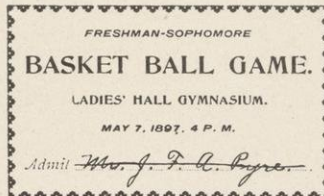 FRESHMAN-SOPHOMORE
BASKET BALL GAME.
LADIES' HALL GYMNASIUM.
MAY 7, 1897, 4 P. M.
Admit Mr. J. F. A. Pyre.